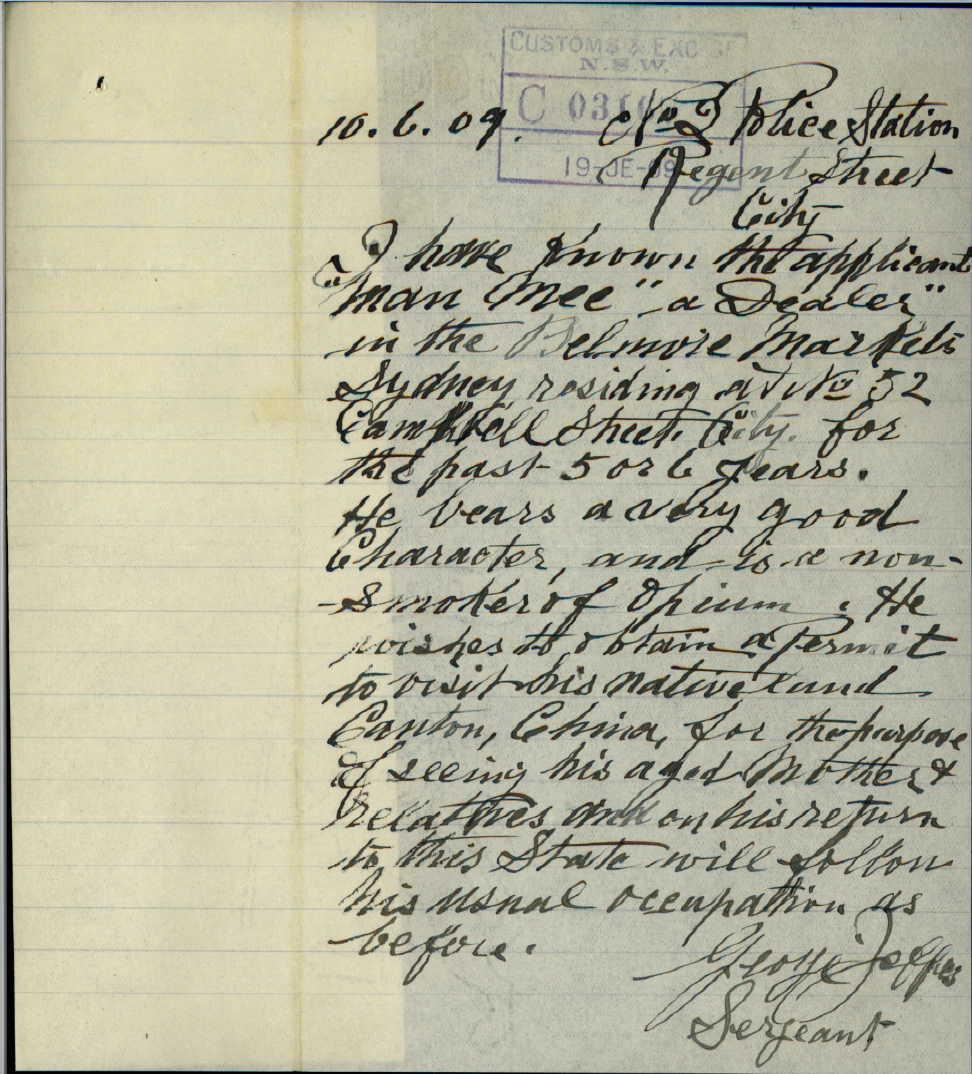 CUSTOMS & EXCISE
N.S.W.
C 0310
19-JE-09
10. 6. 09. No 2 Police Station
Regent Street
City
I have known the applicant
"Man Mee" "a Dealer"
in the Belmore Markets
Sydney residing at No 52
Campbell Street. City. for
the past 5 or 6 years.
He bears a very good
Character, and is a non-
-smoker of Opium. He
wishes to obtain a Permit
to visit his native land
Canton, China, for the purpose
of seeing his aged Mother &
relatives and on his return
to this State will follow
his usual occupation as
before.
George Jeffes
Sergeant